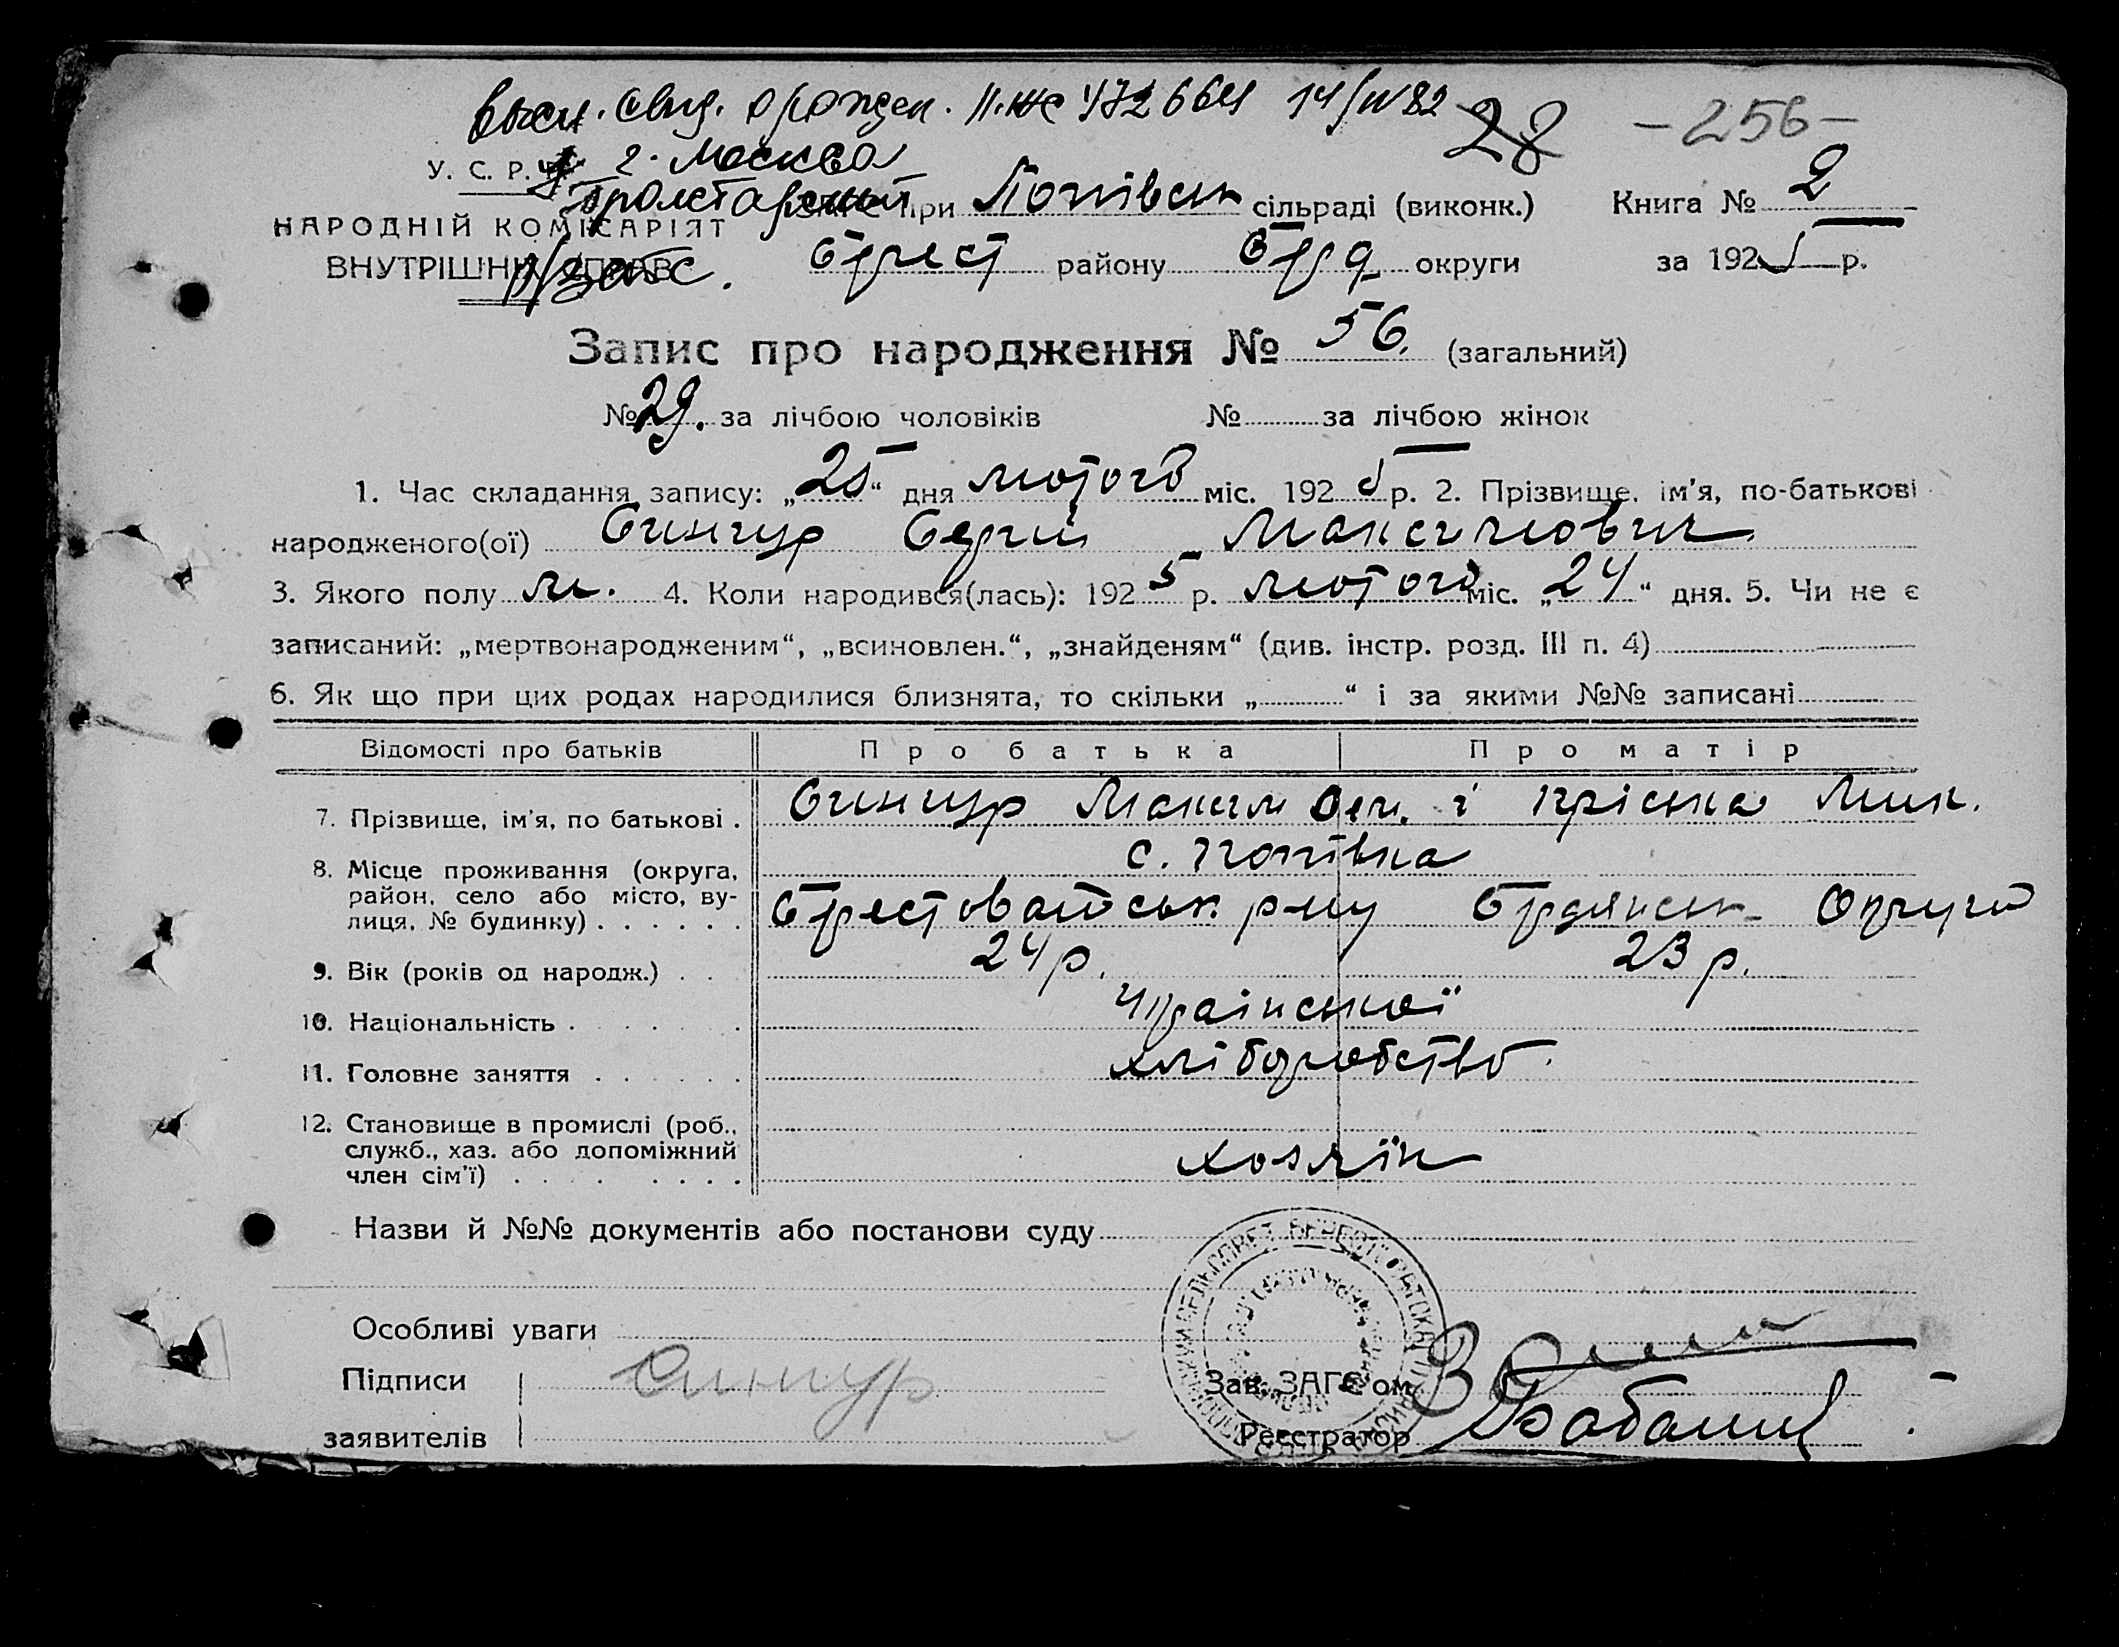 Высл. свид. о рожден. II-ЖС 472664 14/IV 82
28 -256-
У. С. Р. Р. г. Москва
Пролетарский при Попівськ сільраді (виконк.) Книга № 2
НАРОДНІЙ КОМІСАРІЯТ
ВНУТРІШНІХ СПРАВ р/загс. Б-рест району Б-рд округи за 1925 р.
Запис про народження № 56. (загальний)
№ 29. за лічбою чоловіків № за лічбою жінок
1. Час складання запису: „25“ дня лютого міс. 1925 р. 2. Прізвище, ім'я, по-батькові
народженого(ої) Синчур Сергій Максимович
3. Якого полу м. 4. Коли народився(лась): 1925 р. лютого міс. „24“ дня. 5. Чи не є
записаний: „мертвонародженим“, „всиновлен.“, „знайденям“ (див. інстр. розд. III п. 4)
6. Як що при цих родах народилися близнята, то скільки „ “ і за якими №№ записані
Відомості про батьків Про батька Про матір
7. Прізвище, ім'я, по батькові . Синчур Максим і Пріська Мик.
с. Попівка
8. Місце проживання (округа,
район, село або місто, ву-
лиця, № будинку) . . . . . . Берестоватськ р-ну Бердянськ Округи
9. Вік (років од народж.) . . 24 р. 23 р.
10. Національність . . . . . . Української
11. Головне заняття . . . . . хліборобство.
12. Становище в промислі (роб.,
служб., хаз. або допоміжний
член сім'ї) . . . . . . . . хозяїн
Назви й №№ документів або постанови суду
Особливі уваги
Підписи Синчур Зав. ЗАГС'ом
заявителів Реєстратор